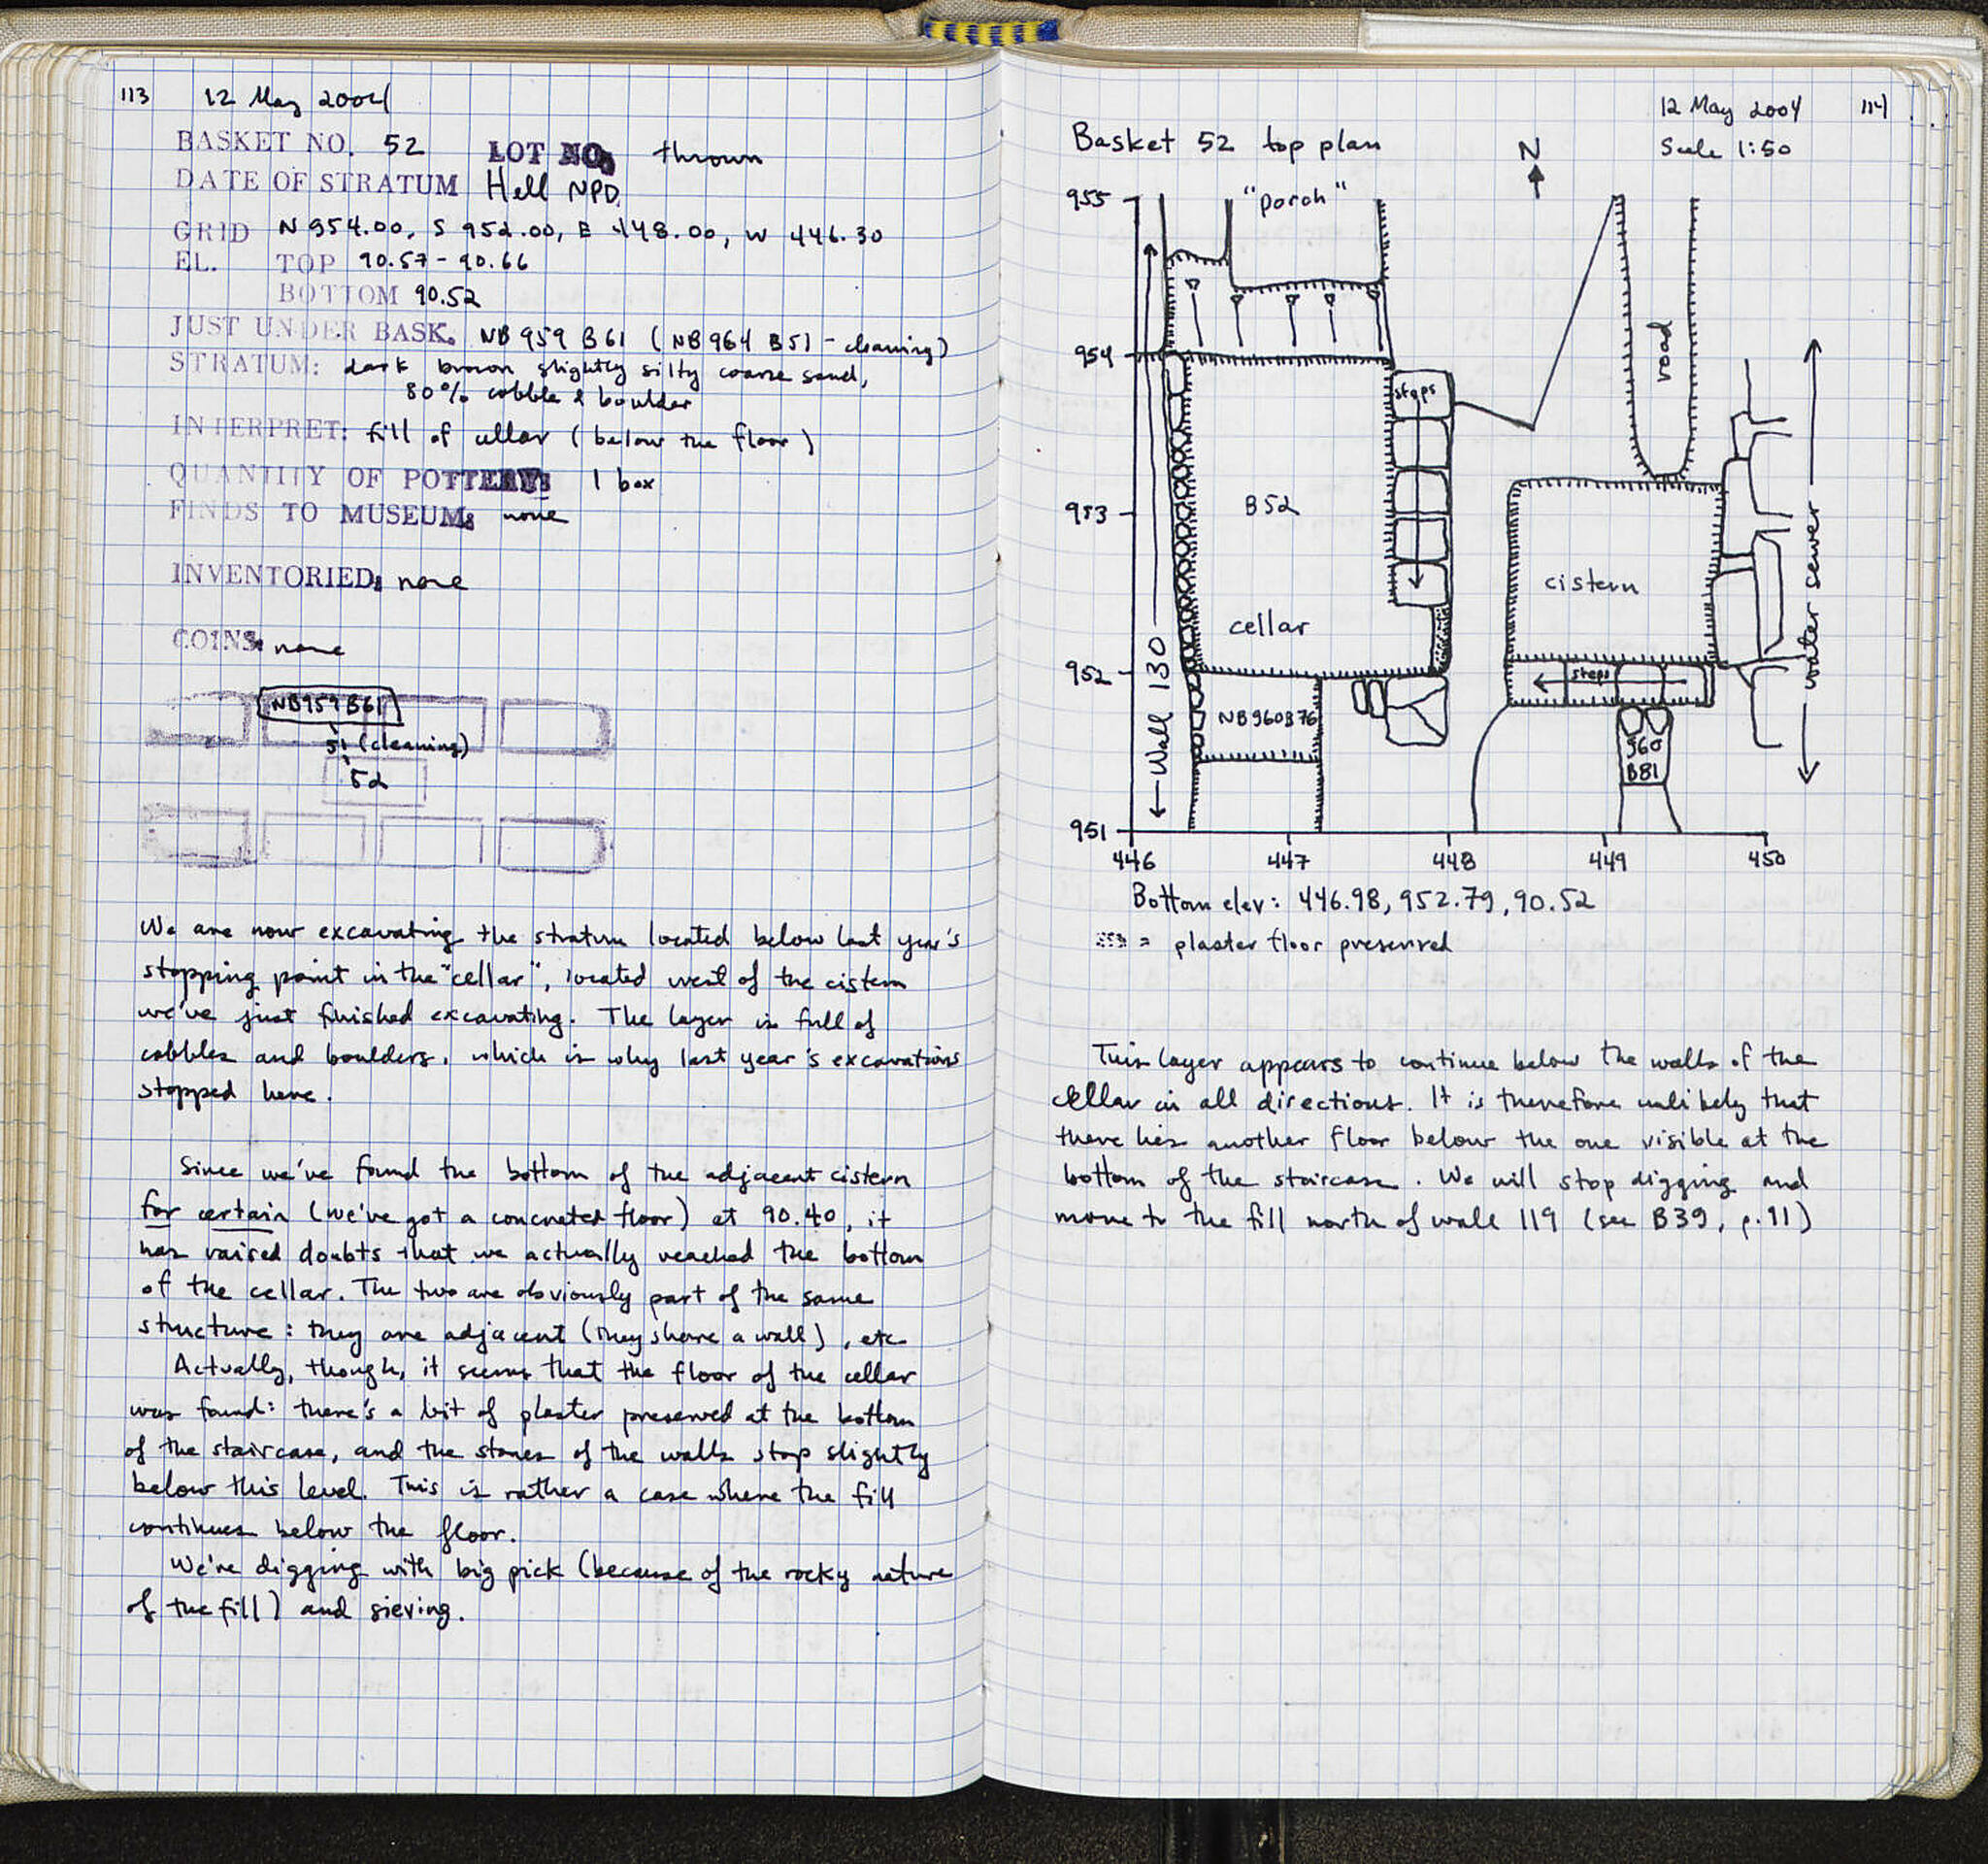 113 12 May 2004
BASKET NO. 52 LOT NO. thrown
DATE OF STRATUM Hell NPD
GRID N 954.00, S 952.00, E 448.00, W 446.30
EL. TOP 90.57 - 90.66
BOTTOM 90.52
JUST UNDER BASK. NB 959 B61 (NB 964 B51 - cleaning)
STRATUM: dark brown slightly silty coarse sand,
80% cobble & boulder
INTERPRET: fill of cellar (below the floor)
QUANTITY OF POTTERY: 1 box
FINDS TO MUSEUM: none
INVENTORIED: none
COINS: none
NB959 B61
51 (cleaning)
52
We are now excavating the stratum located below last year's
stopping point in the "cellar", located west of the cistern
we've just finished excavating. The layer is full of
cobbles and boulders, which is why last year's excavations
stopped here.
Since we've found the bottom of the adjacent cistern
for certain (we've got a concreted floor) at 90.40, it
has raised doubts that we actually reached the bottom
of the cellar. The two are obviously part of the same
structure: they are adjacent (they share a wall), etc
Actually, though, it seems that the floor of the cellar
was found: there's a bit of plaster preserved at the bottom
of the staircase, and the stones of the walls stop slightly
below this level. This is rather a case where the fill
continues below the floor.
We're digging with big pick (because of the rocky nature
of the fill) and sieving.
12 May 2004 114
Basket 52 top plan
N
Scale 1:50
955
"porch"
road
954
steps
953
B52
cistern
water sewer
cellar
952
steps
Wall 130
NB960B76
960
B81
951
446 447 448 449 450
Bottom elev: 446.98, 952.79, 90.52
= plaster floor preserved
This layer appears to continue below the walls of the
cellar in all directions. It is therefore unlikely that
there lies another floor below the one visible at the
bottom of the staircase. We will stop digging and
move to the fill north of wall 119 (see B39, p.91)